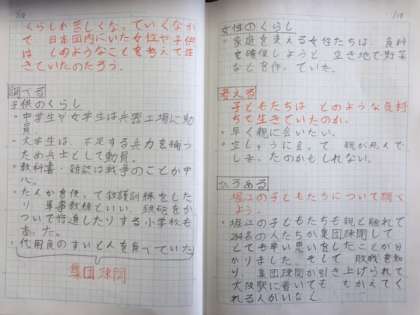 くらしが苦しくなっていくなか
で、日本国内にいた女性や子供
は、どのようなことを考えて生
きていたのだろう。
調べる
子供のくらし
・中学生や女学生は兵器工場に動
員。
・大学生は、不足する兵力を補う
ため兵士として動員。
・教科書・雑誌は戦争のことが中
心。
・たんかを使って救護訓練をした
り、軍事教練といい、鉄砲をか
ついで行進したりする小学校も
あった。
・代用食のすいとんを食べていた
集団疎開
女性のくらし
・家庭を支える女性たちは、食料
を確保しようと空き地で野菜
などを作っていた。
考える
子どもたちは、どのような気持
ちで生きていたのか。
・早く親に会いたい。
・空しゅうに会って、親が死んで
しまったのかもしれない。
ひろめる
堀江の子どもたちについて聞く
よう。
・堀江の子どもたちも親と離れて
の人たちが集団疎開して
とても辛い思いをしたことが分
かりました。そして、敗戦を知
り、集団疎開が引き上げられて
大阪駅に着いても、むかえてく
れる人がいなく